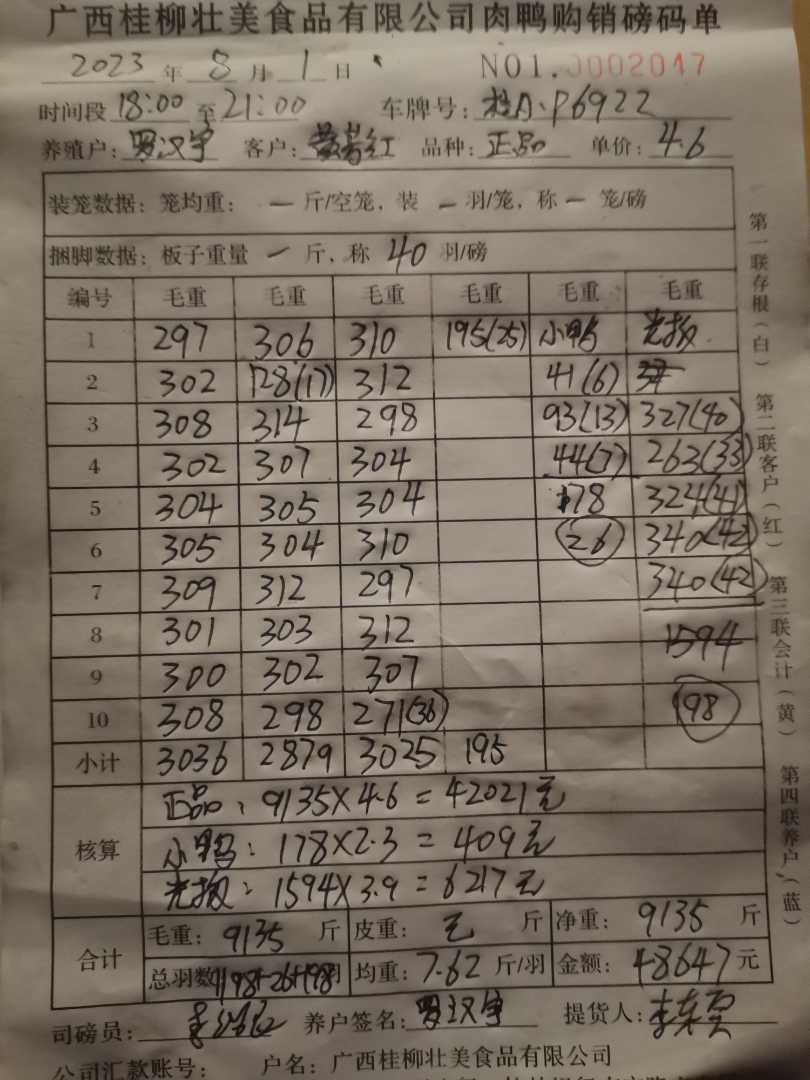 广西桂柳壮美食品有限公司肉鸭购销磅码单
2023 年 8 月 1 日 NO1.0002047
时间段 18:00 至 21:00 车牌号: 桂A·P6922
养殖户: 罗汉宇 客户: 品种: 正品 单价: 4.6
装笼数据: 笼均重: 一 斤/空笼, 装 一 羽/笼, 称 一 笼/磅
捆脚数据: 板子重量 一 斤, 称 40 羽/磅
编号 毛重 毛重 毛重 毛重 毛重 毛重
1 297 306 310 195(25) 小鸭 光扳
2 302 128(17) 312 41(6)
3 308 314 298 93(13) 327(40)
4 302 307 304 44(7) 263(33)
5 304 305 304 178 324(41)
6 305 304 310 26 340(42)
7 309 312 297 340(42)
8 301 303 312 1594
9 300 302 307
10 308 298 271(36) 198
小计 3036 2879 3025 195
核算
正品: 9135×4.6=42021元
小鸭: 178×2.3=409元
光扳: 1594×3.9=6217元
合计
毛重: 9135 斤 皮重: 斤 净重: 9135 斤
总羽数 1198+26+198 均重: 7.62 斤/羽 金额: 48647 元
司磅员: 养户签名: 罗汉宇 提货人:
公司汇款账号: 户名: 广西桂柳壮美食品有限公司
第一联存根(白)
第二联客户(红)
第三联会计(黄)
第四联养户(蓝)